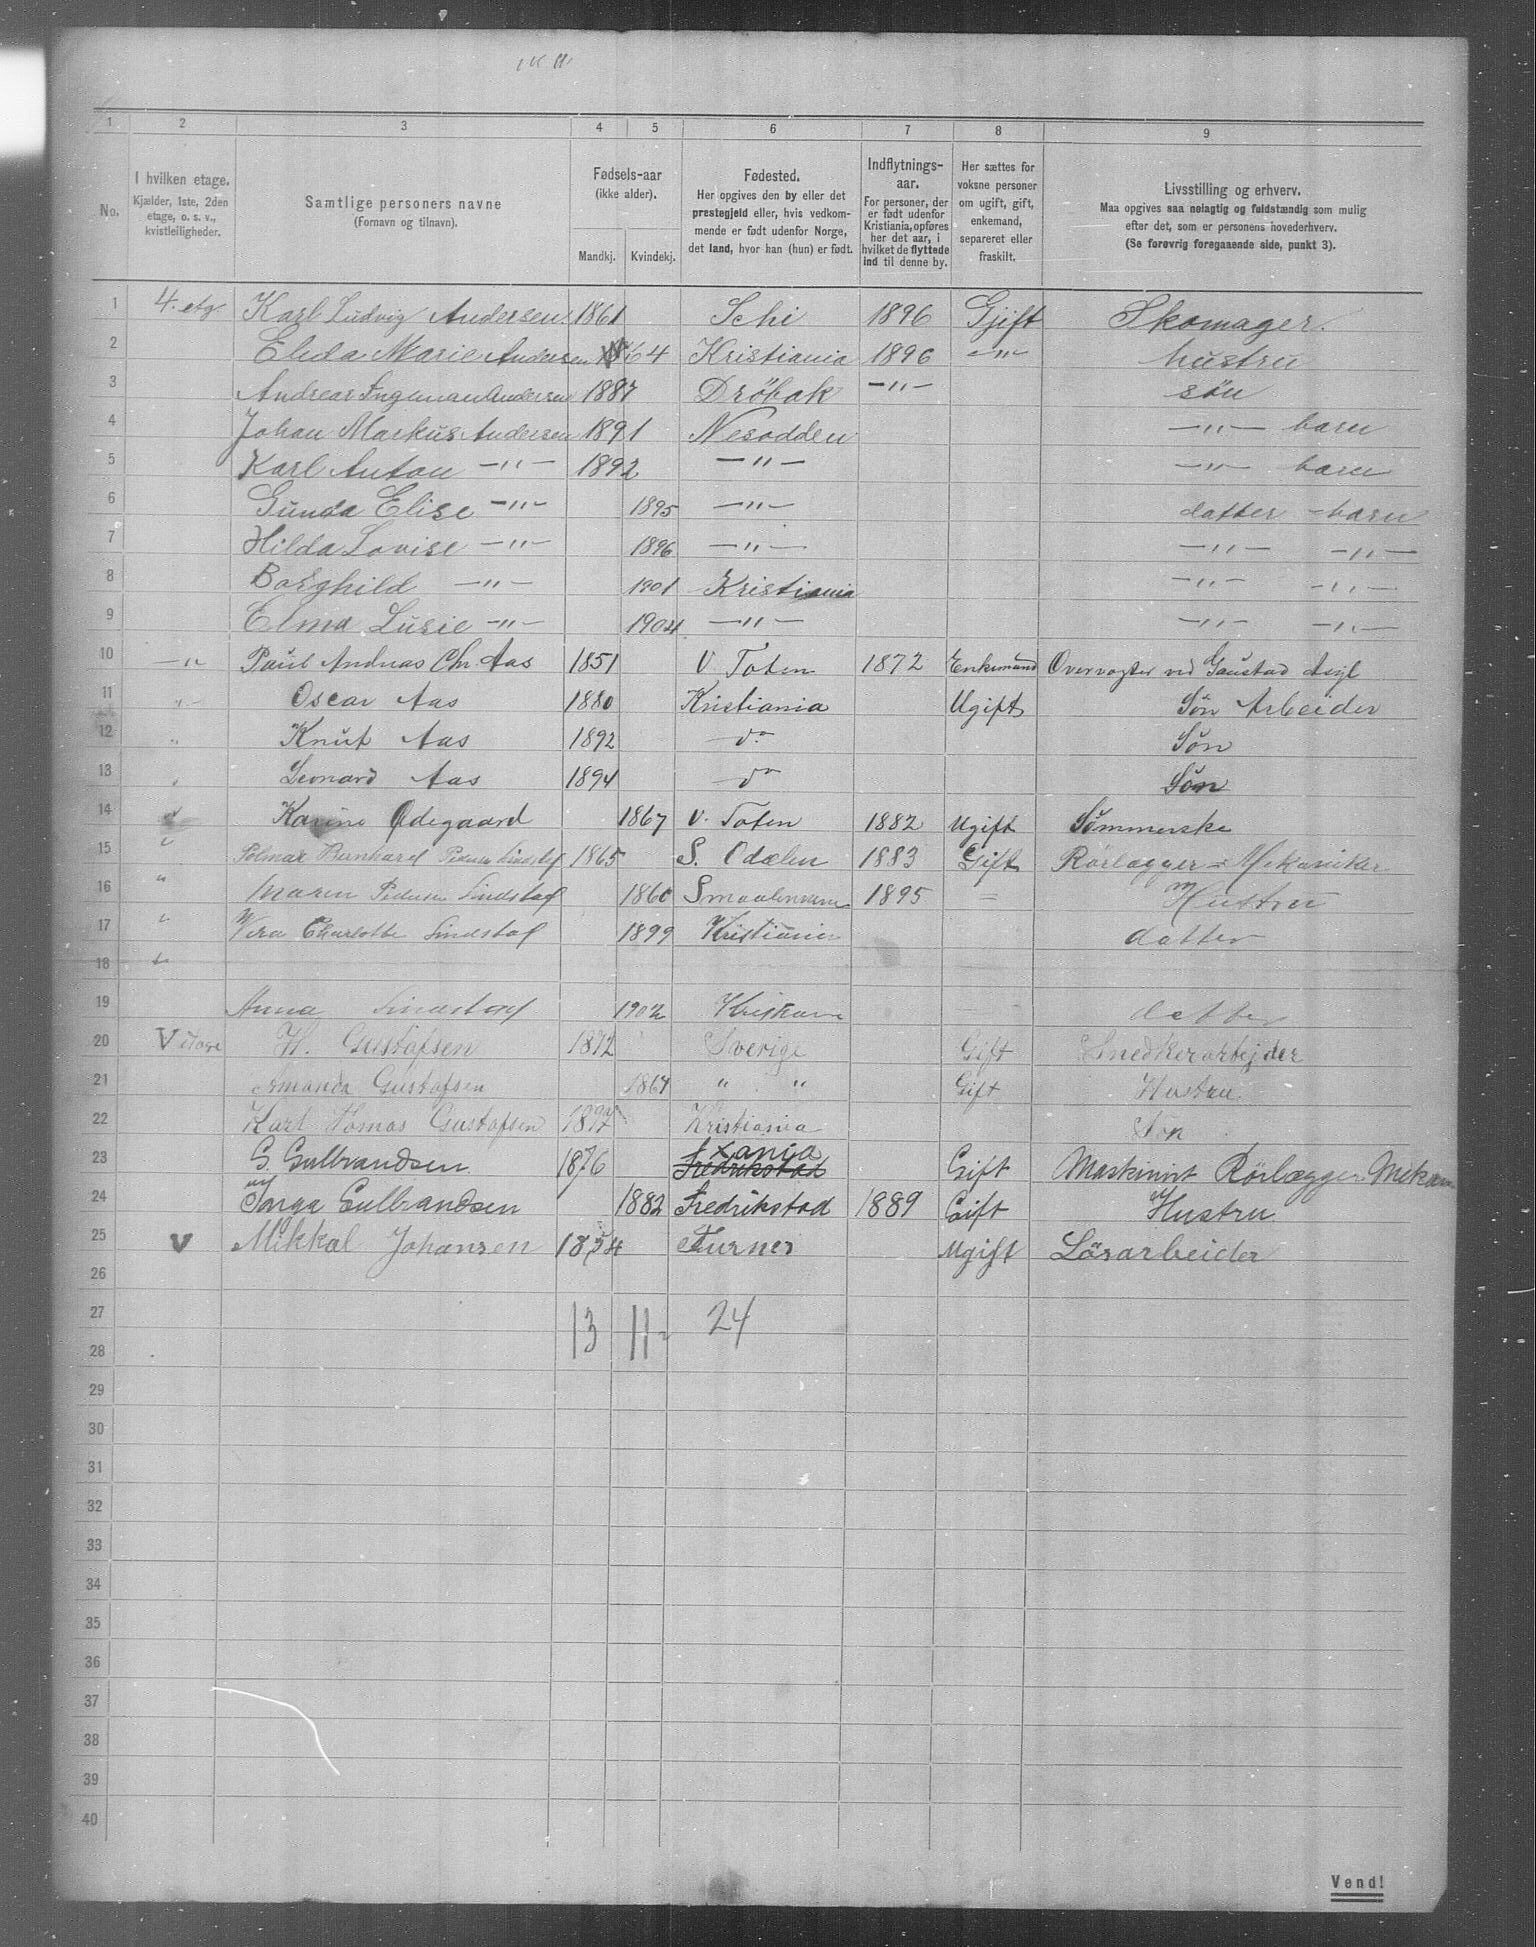 1 2 3 4 5 6 7 8 9
No. I hvilken etage. Kjælder, 1ste, 2den etage, o. s. v., kvistleiligheder. Samtlige personers navne (Fornavn og tilnavn). Fødsels-aar (ikke alder). Mandkj. Kvindekj. Fødested. Her opgives den by eller det prestegjeld eller, hvis vedkommende er født udenfor Norge, det land, hvor han (hun) er født. Indflytnings-aar. For personer, der er født udenfor Kristiania, opføres her det aar, i hvilket de flyttede ind til denne by. Her sættes for voksne personer om ugift, gift, enkemand, separeret eller fraskilt. Livsstilling og erhverv. Maa opgives saa nøiagtig og fuldstændig som mulig efter det, som er personens hovederhverv. (Se forøvrig foregaaende side, punkt 3).
1 4. etg. Karl Ludvig Andersen 1861 Schi 1896 Gjift Skomager.
2 Elida Marie Andersen 64 Kristiania 1896 —"— hustru
3 Andreas Ingeman Andersen 1887 Dröbak —"— sön
4 Johan Markus Andersen 1891 Nesodden —"— barn
5 Karl Anton —"— 1892 —"— —"— barn
6 Gunda Elise —"— 1895 —"— datter - barn
7 Hilda Lovise —"— 1896 —"— —"— —"—
8 Borghild —"— 1901 Kristiania —"— —"—
9 Elma Lusie —"— 1904 —"— —"— —"—
10 —"— Paul Andreas Chr. Aas 1851 V Toten 1872 Enkemand Overvogter ved Gaustad Asyl
11 " Oscar Aas 1880 Kristiania Ugift Søn Arbeider
12 " Knut Aas 1892 do Søn
13 " Leonard Aas 1894 do Søn
14 " Karine Ødegaard 1867 V. Toten 1882 Ugift Sömmerske
15 " Bernhard Pedersen Lindstad 1865 S. Odalen 1883 Gift Rörlægger - Mekaniker
16 " Maren Pedersen Lindstad 1860 Smaalenene 1895 = Hustru
17 " Vera Charlotte Lindstad 1899 Kristiania datter
18 "
19 Anna Lindstad 1902 Kristiania datter
20 V etage H. Gustafsen 1872 Sverige Gift Snedkerarbejder
21 Amanda Gustafsen 1867 " " Gift Hustru
22 Karl Tomas Gustafsen 1897 Kristiania Søn
23 G. Gulbrandsen 1876 Xania Fredrikstad Gift Maskinist Rörlægger Mekan
24 Inga Gulbrandsen 1882 Fredrikstad 1889 Gift Hustru
25 V Mikkal Johansen 1854 Furnes Ugift Lösarbeider
26
27 13 11 24
28
29
30
31
32
33
34
35
36
37
38
39
40
Vend!